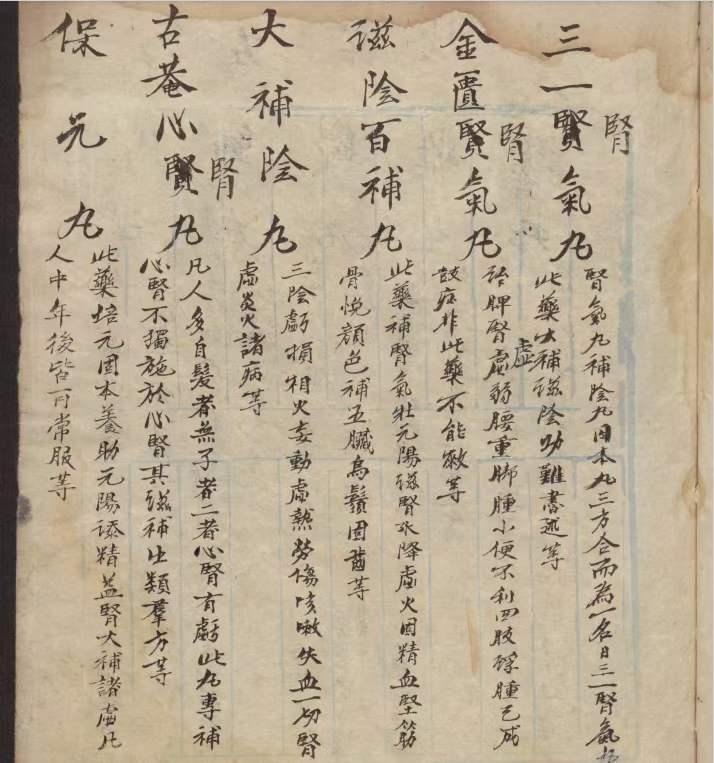 三一賢氣丸
腎
腎氣丸補陰丸固本丸三方合而為一名曰三一腎氣丸
此藥大補滋陰功難書述等
金匱賢氣丸
腎
治脾腎虛弱腰重脚腫小便不利四肢浮腫已成
虛
鼓病非此藥不能救等
滋陰百補丸
此藥補腎氣壯元陽滋腎水降虛火固精血堅筋
骨悅顏色補五臟烏鬚固齒等
大補陰丸
三陰虧損相火妄動虛熱勞傷咳嗽失血一切腎
虛炎火諸病等
古菴心賢丸
腎
凡人多白髮者無子者二者心腎有虧此丸專補
心腎不獨施於心腎其滋補出類羣方等
保元丸
此藥培元固本養助元陽添精益腎大補諸虛凡
人中年後皆可常服等